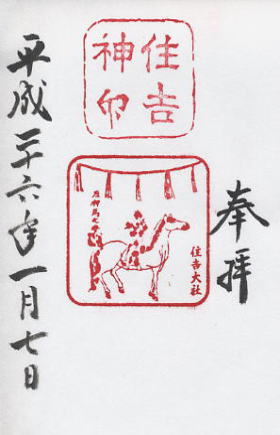 奉拝
住吉
神印
住吉大社
平成二十六年一月七日